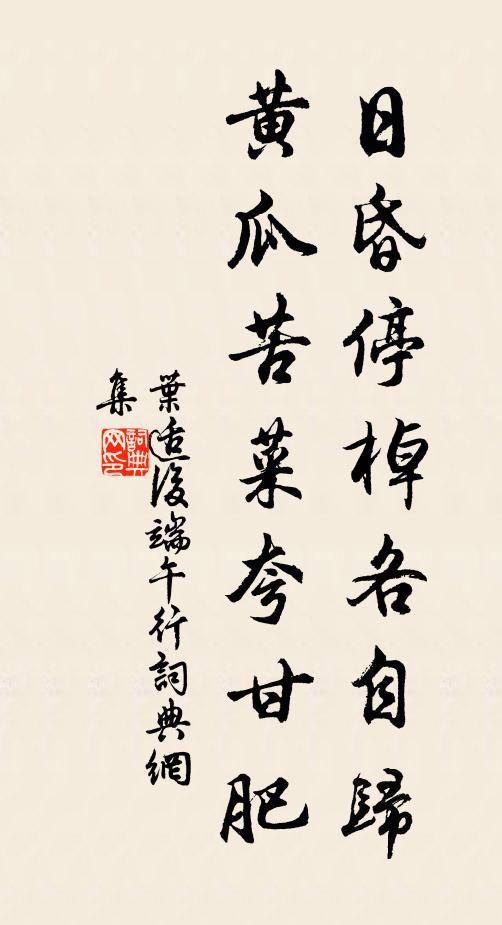 日昏停棹各自歸
黃瓜苦菜夸甘肥
葉適後端午行詞典網
集
詞典
网印